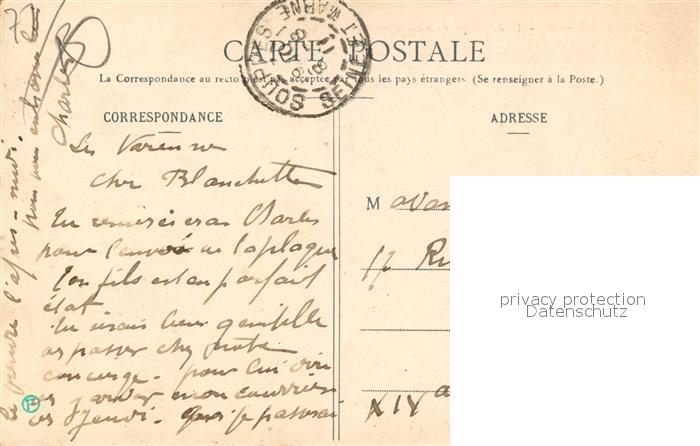 77
CARTE POSTALE
La Correspondance au recto n'est pas acceptée par tous les pays étrangers (Se renseigner à la Poste.)
CORRESPONDANCE
Les Varenne
Cher Blanchette
Tu remercieras Charles
pour l'envoi de la plaque
Ton fils est en parfait
état
Tu serais bien gentille
de passer chez notre
concierge - pour lui dire
de garder mon courrier
de Jeudi - que je passerai
le prendre l'après-midi.
pour
Charles
SEINE-ET-MARNE
ADRESSE
M
17 Ru
XIV a
privacy protection
Datenschutz